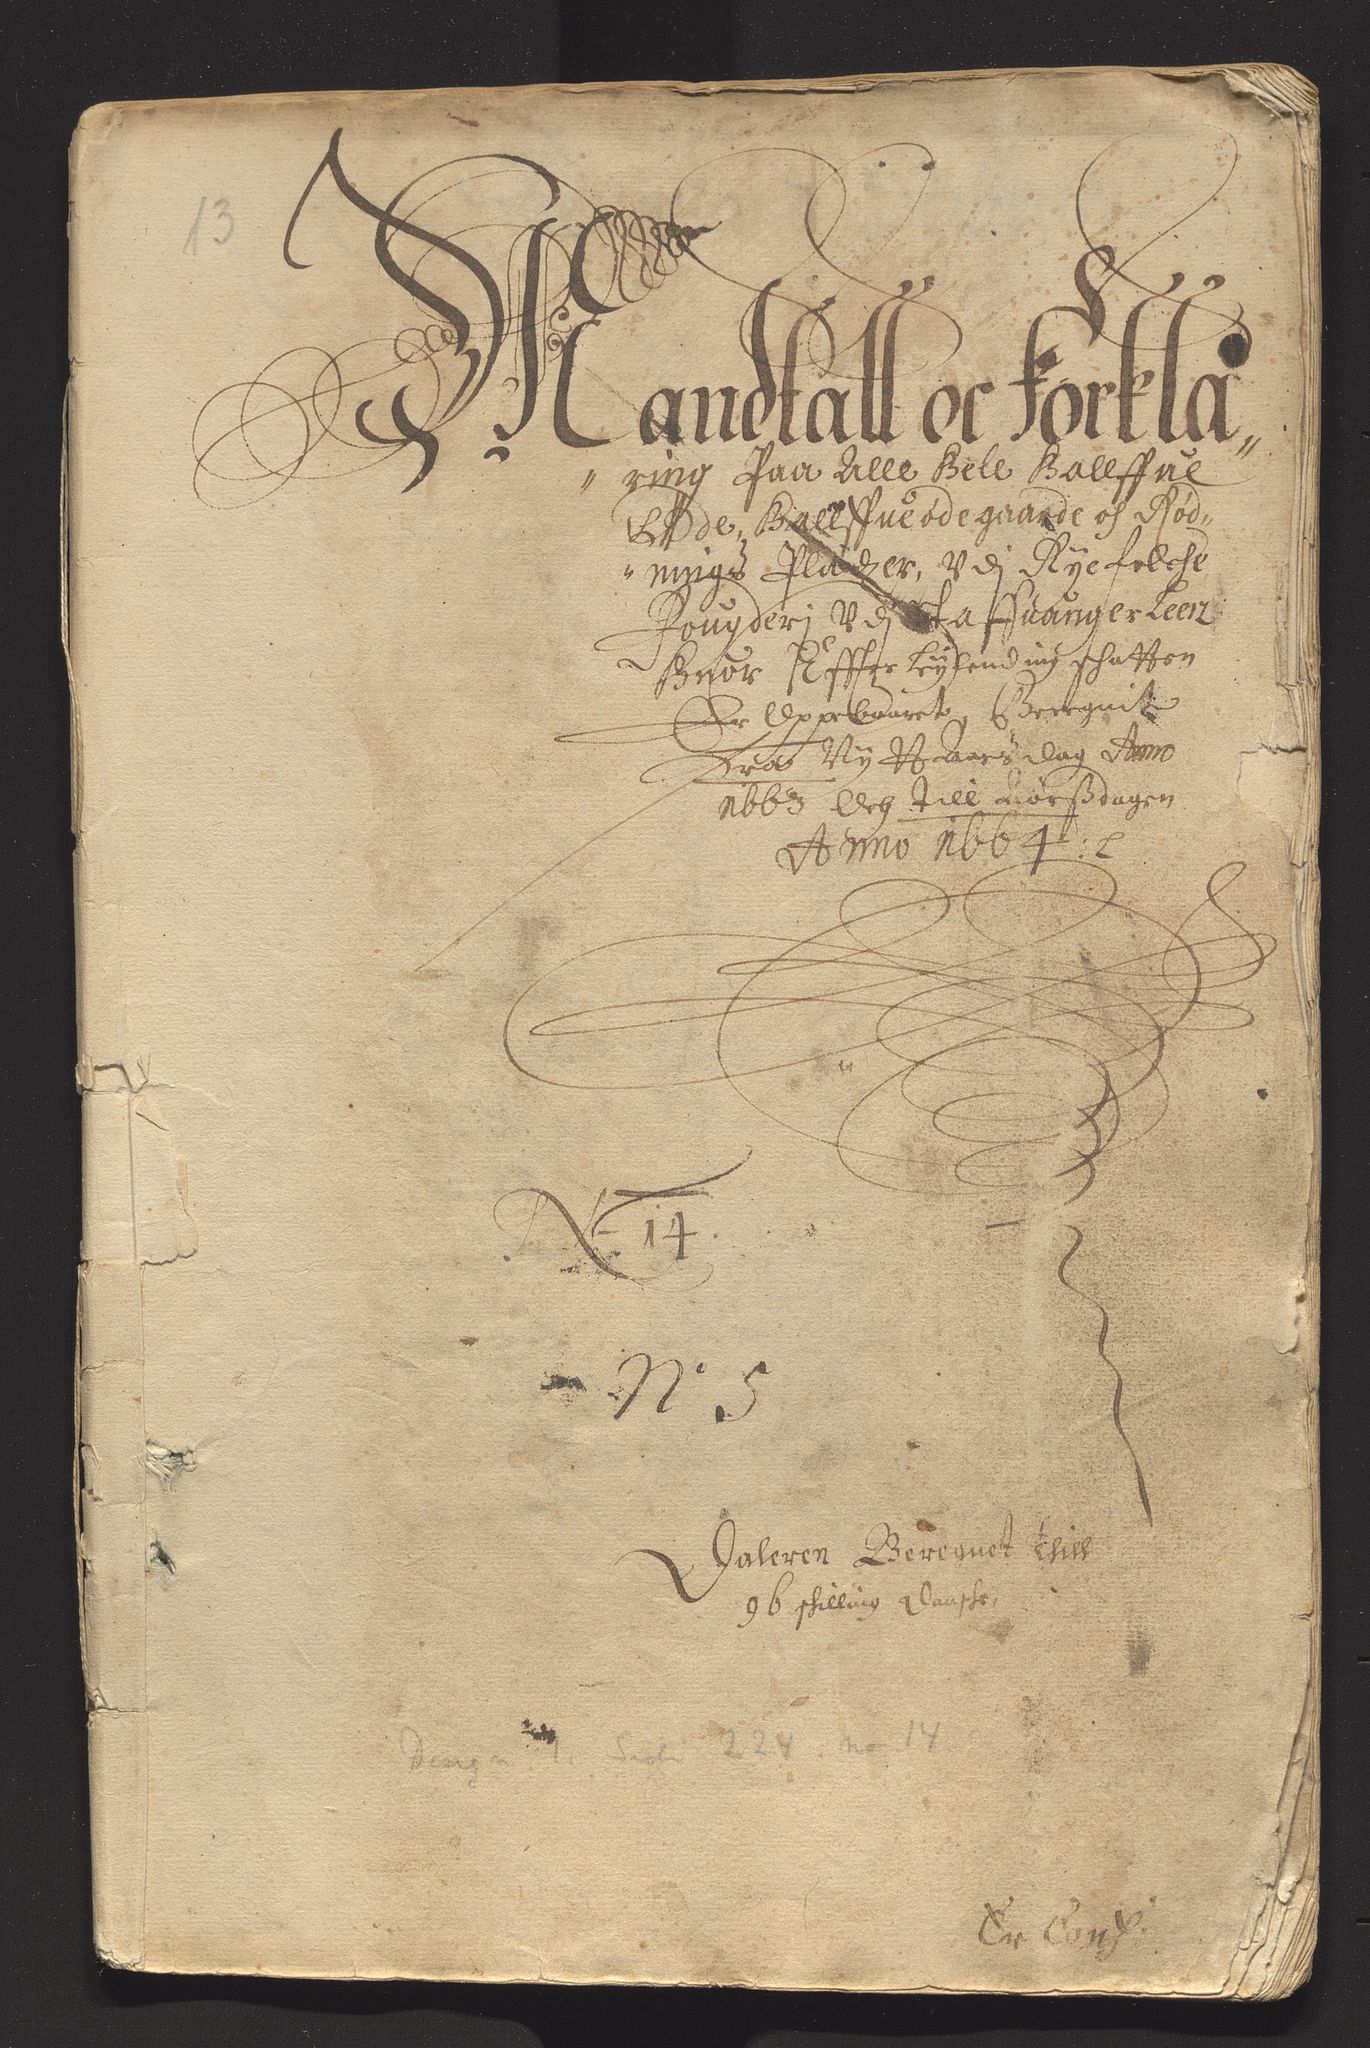 13
Mandtall oc forkla
ring Paa Alle Hele Hallffue
Øde, Hallffue ødegaarde och Rød
nings Pladtzer, Vdj Ryefylche
Fougderj Vdj Staffuanger Leen
Huor Effter Leylending schatten
Er Oppebaaret, Beregnit
Fra Ny Aars dag Anno
1663 Och till Aarsdagen
Anno 1664
N 14
N° 5
Daleren Beregnet thill
96 schilling Dansche,
1. Side 224. no 14
Er Conf.